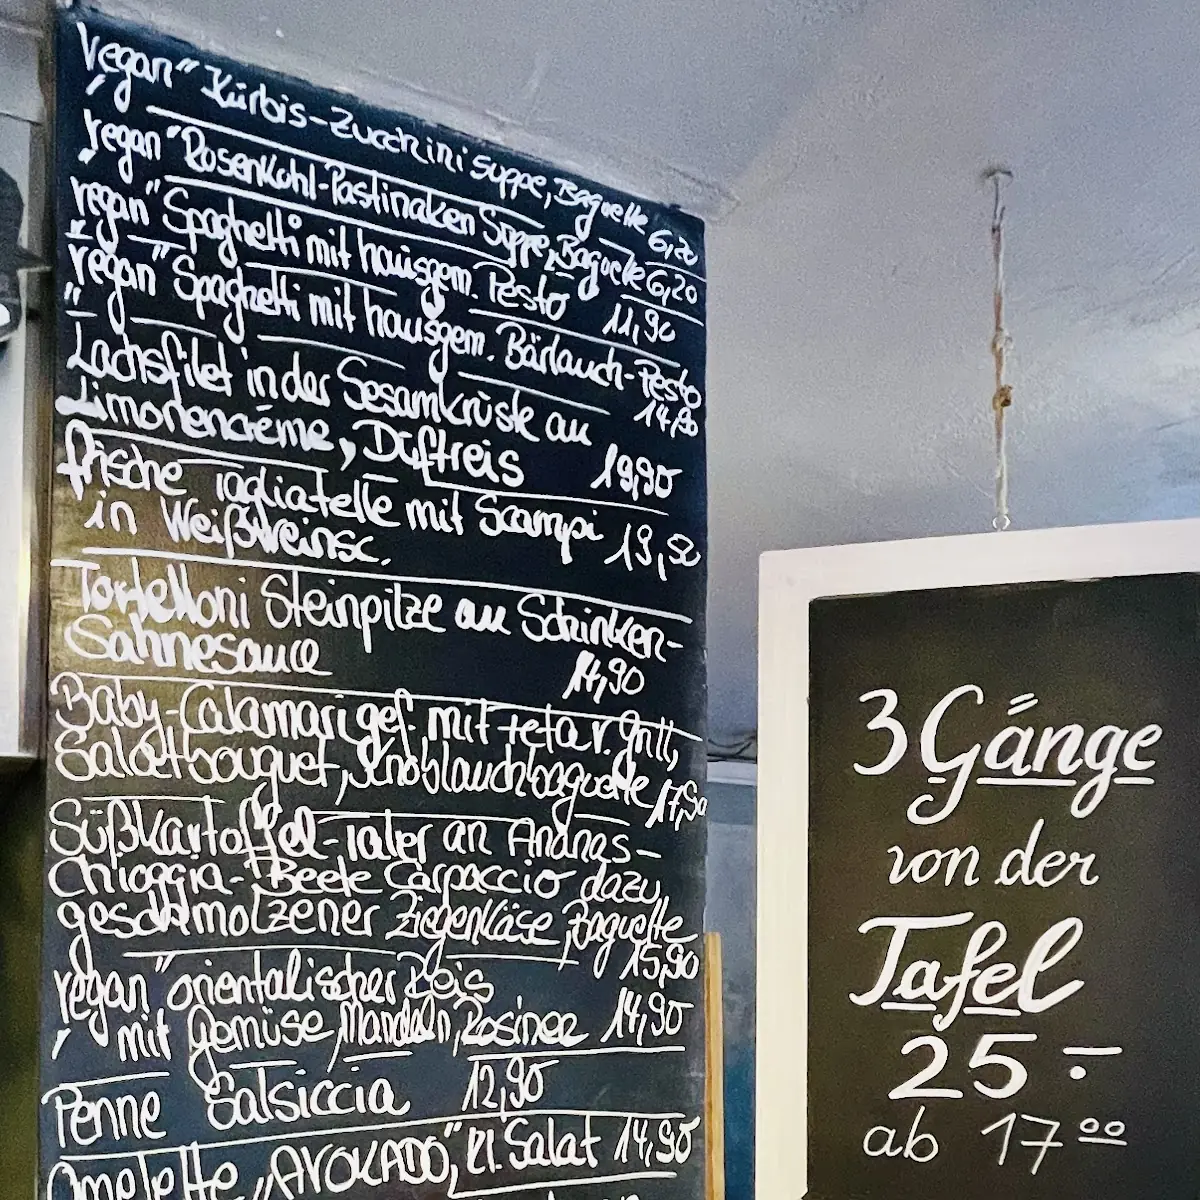 "vegan" Kürbis-Zucchini Suppe, Baguette 6,20
"vegan" Rosenkohl-Pastinaken Suppe, Baguette 6,20
"vegan" Spaghetti mit hausgem. Pesto 11,90
"vegan" Spaghetti mit hausgem. Bärlauch-Pesto
14,90
Lachsfilet in der Sesamkrüste an
Limonencréme, Düftreis 19,90
frische Tagliatelle mit Scampi
in Weißweinsc. 19,50
Tortelloni Steinpilze an Schinken-
Sahnesauce 14,90
Baby-Calamari gef. mit Feta v. Grill,
Salatbouquet, Knoblauchbaguette 17,90
Süßkartoffel-Taler an Ananas-
Chioggia-Beete Carpaccio dazu
geschmolzener Ziegenkäse, Baguette
15,90
"vegan" orientalischer Reis
mit Gemüse, Mandeln, Rosinen 14,90
Penne Salsiccia 12,90
Omelette "AVOKADO", kl. Salat 14,90
3 Gänge
von der
Tafel
25.-
ab 17 00